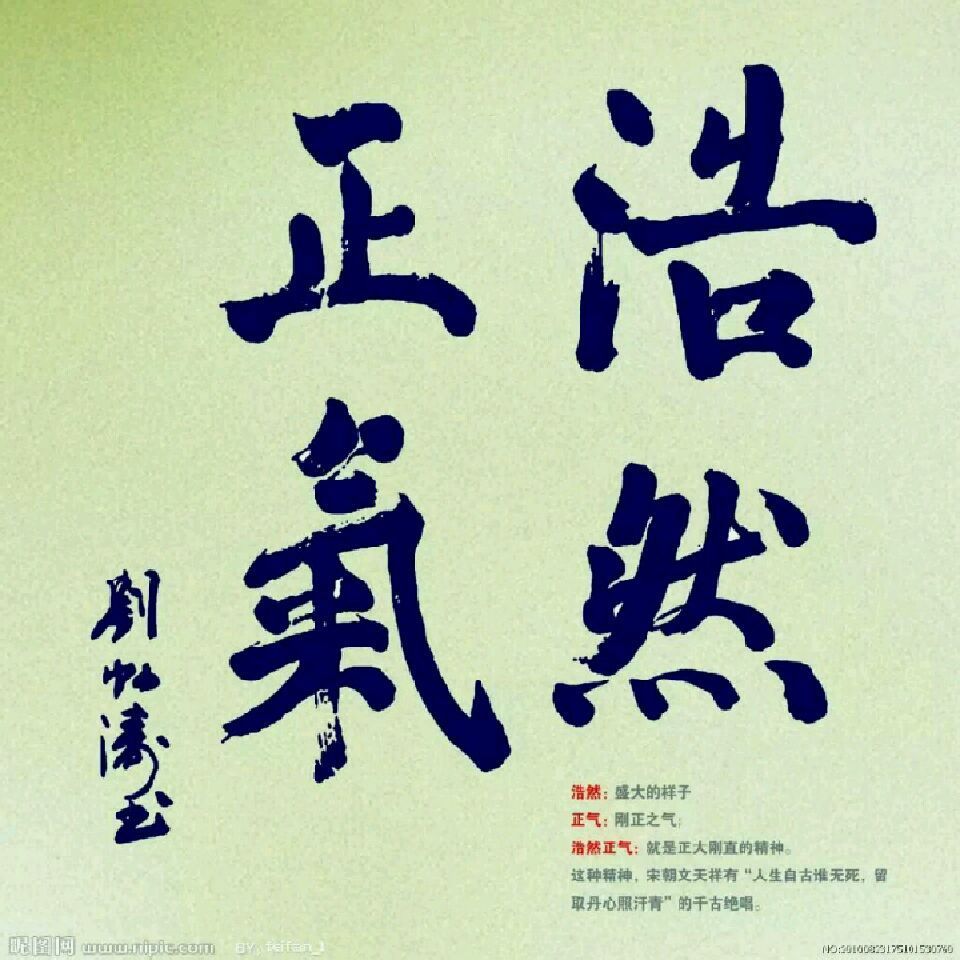 浩然
正氣
劉
濤
浩然：盛大的样子
正气：刚正之气；
浩然正气：就是正大刚直的精神。
这种精神，宋朝文天祥有“人生自古谁无死，留
取丹心照汗青”的千古绝唱。
昵图网 www.nipic.com BY: feifan_1
NO:20100823175101530760